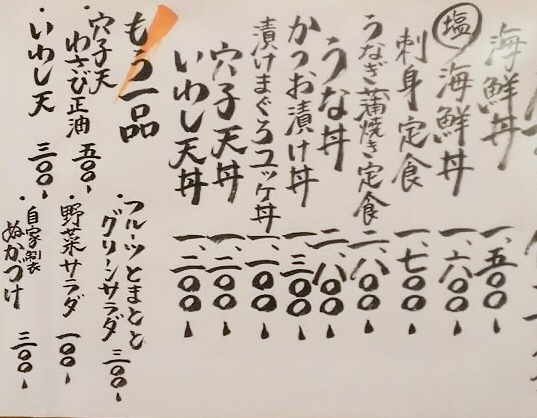 海鮮丼 一、五〇〇
㊙塩 海鮮丼 一、六〇〇
刺身定食 一、七〇〇
うなぎ蒲焼き定食 二、八〇〇
うな丼 二、八〇〇
かつお漬け丼 一、三〇〇
漬けまぐろユッケ丼 一、一〇〇
穴子天丼 一、三〇〇
いわし天丼 一、二〇〇
もう一品
・穴子天
わさび正油 五〇〇
・いわし天 三〇〇
・フルーツとまとと
グリーンサラダ 三〇〇
・野菜サラダ 一〇〇
・自家製
ぬかづけ 三〇〇